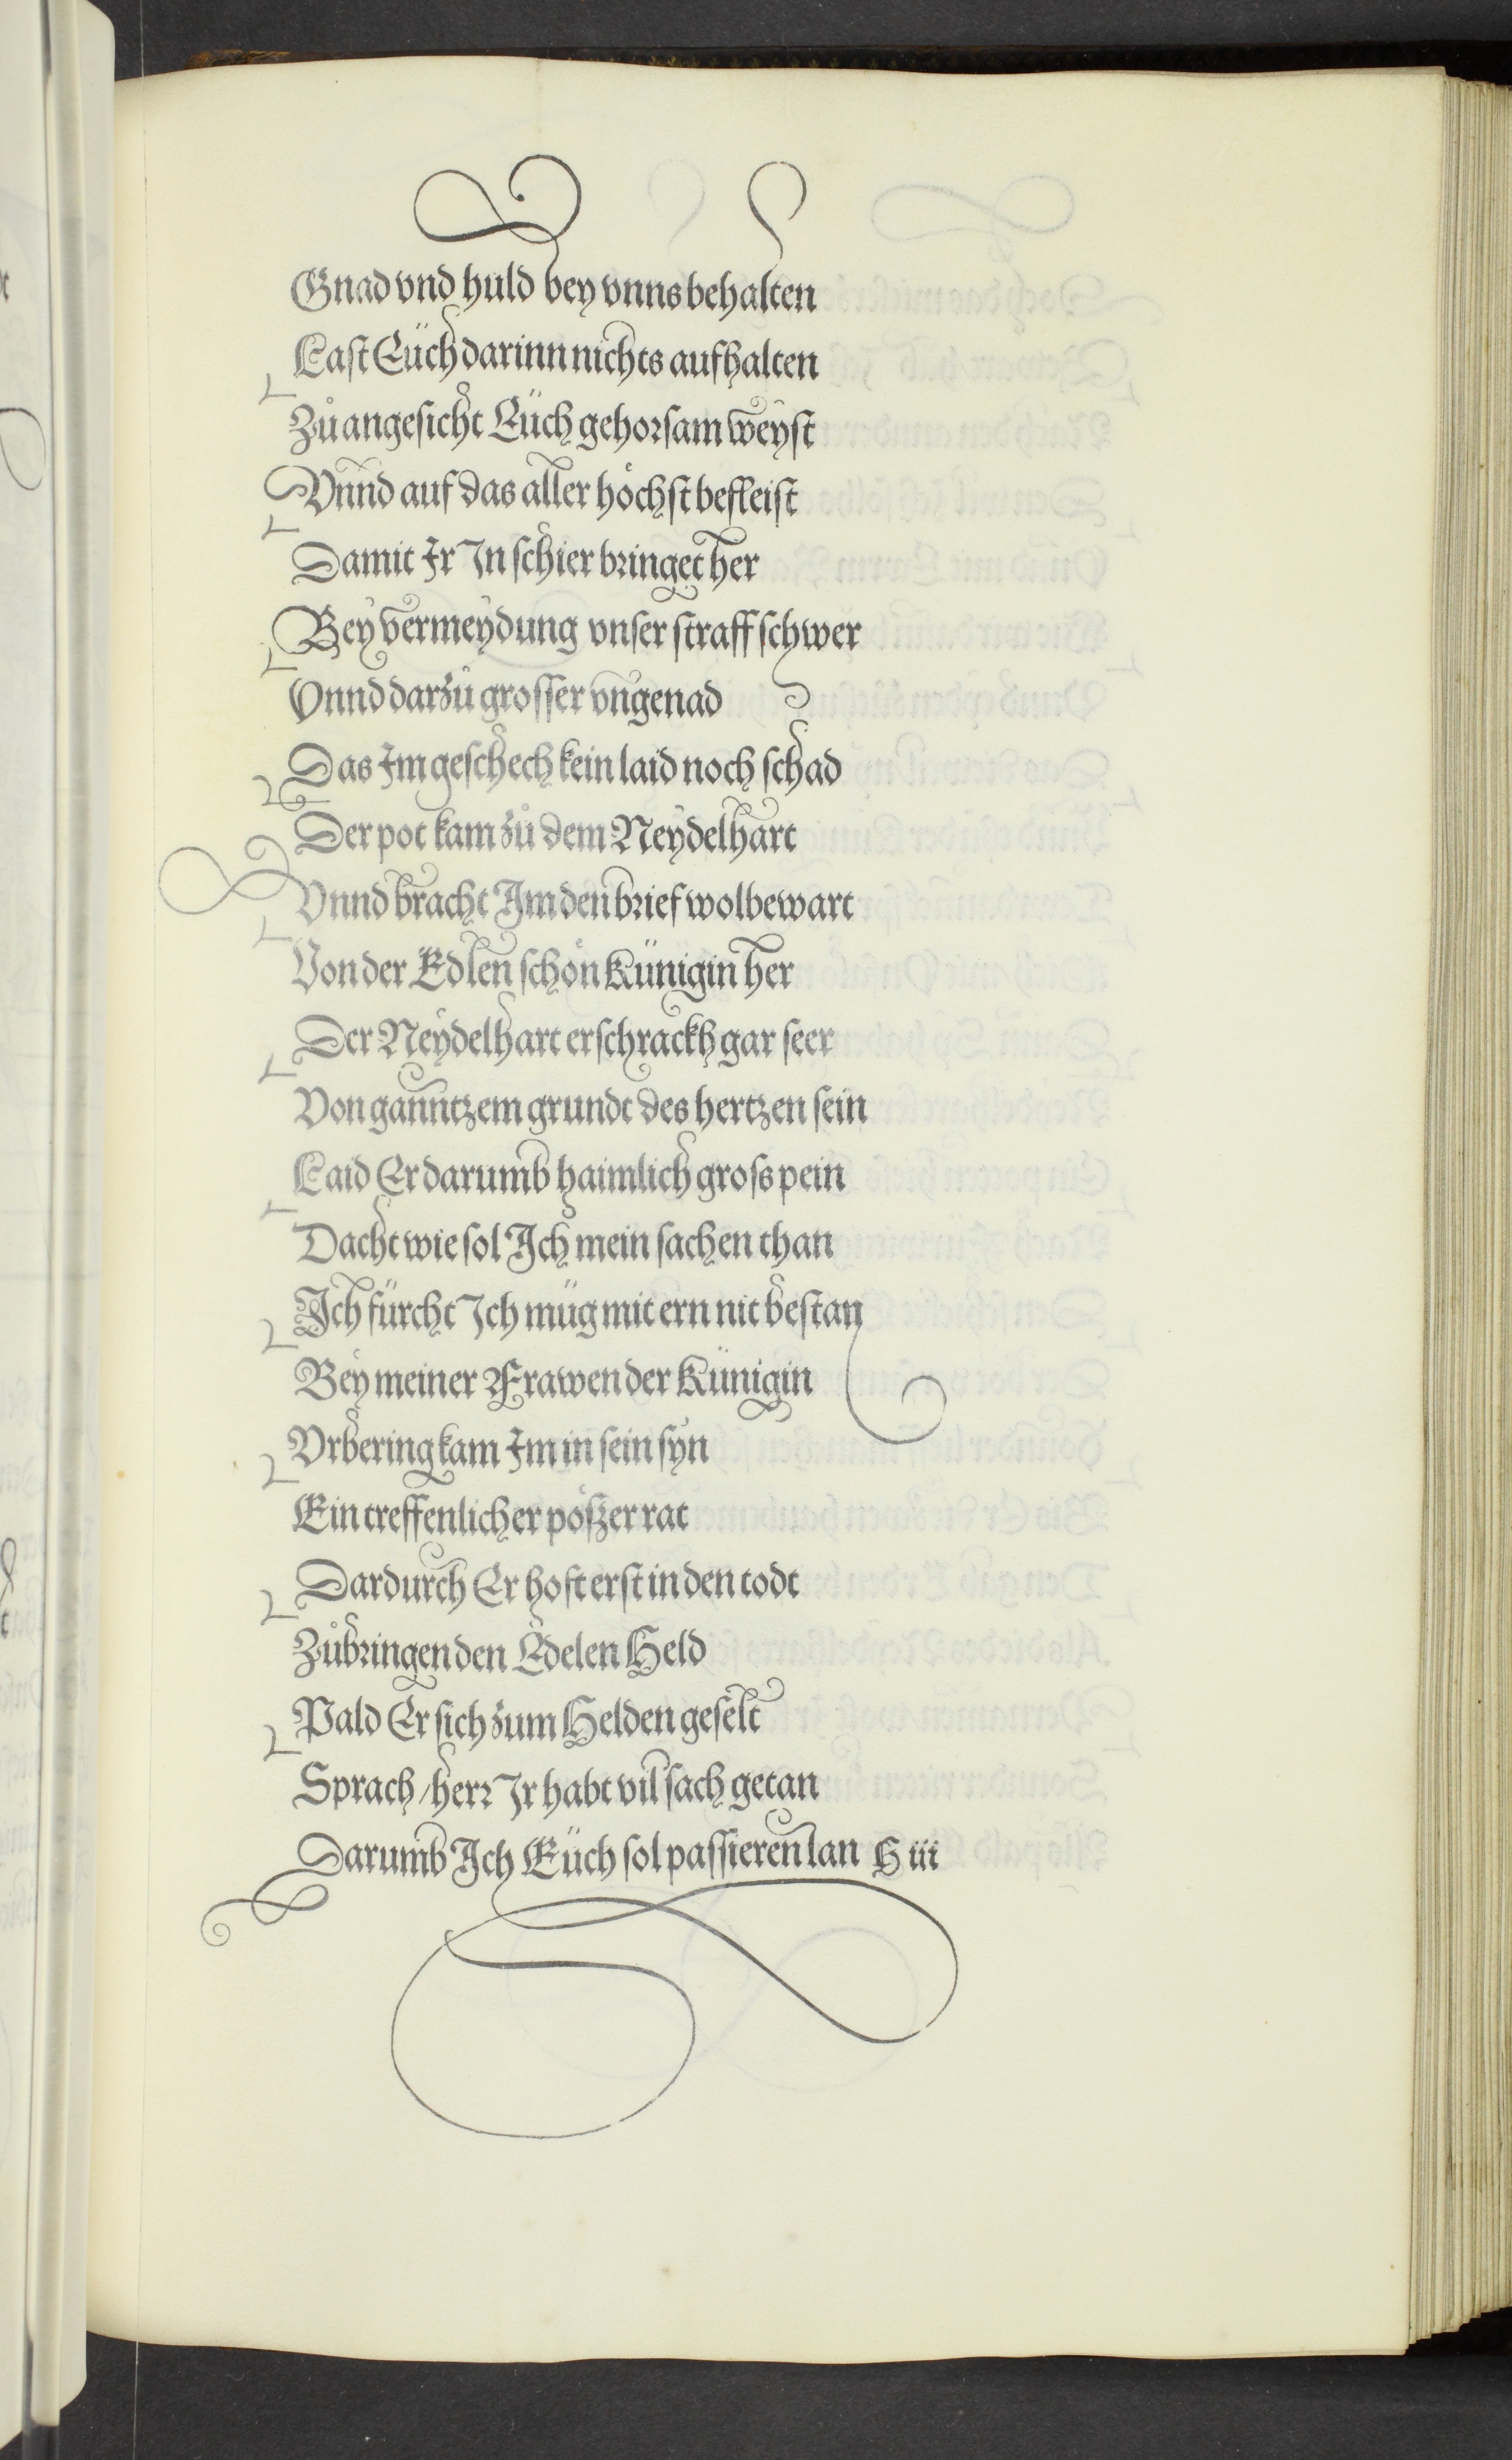 Gnad vnd huld bey vnns behalten
Last Eüch darinn nichts aufhalten
Zů angesicht Eüch gehorsam weyst
Vnnd auf das aller höchst befleist
Damit Ir In schier bringet her
Bey vermeydung vnser straff schwer
Vnnd darzů grosser vngenad
Das Im geschech kein laid noch schad
Der pot kam zů dem Neydelhart
Vnnd bracht Im den brief wolbewart
Von der Edlen schön Künigin her
Der Neydelhart erschrackh gar seer
Von ganntzem grundt des hertzen sein
Laid Er darumb haimlich gross pein
Dacht wie sol Ich mein sachen than
Ich fürcht Ich müg mit ern nit bestan
Bey meiner Frawen der Künigin
Vrbering kam Im in sein syn
Ein treffenlicher pöszer rat
Dardurch Er hoft erst in den todt
Zůbringen den Edelen Held
Pald Er sich zum Helden geselt
Sprach / herr Ir habt vil sach getan
Darumb Ich Eüch sol passieren lan H iii